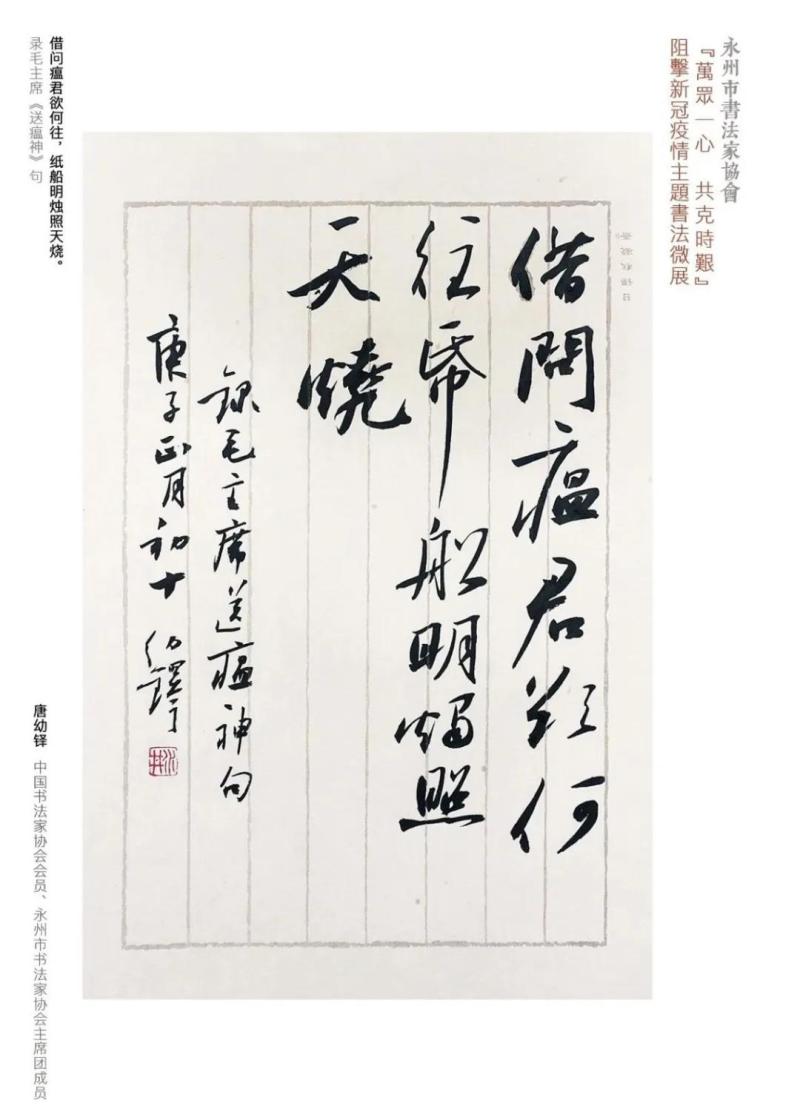 永州市書法家協會
『萬眾一心 共克時艱』
阻擊新冠疫情主題書法微展
借問瘟君欲何
往帋船明燭照
天燒
錄毛主席送瘟神句
庚子正月初十 幼鐸
借问瘟君欲何往，纸船明烛照天烧。
录毛主席《送瘟神》句
唐幼铎 中国书法家协会会员、永州市书法家协会主席团成员